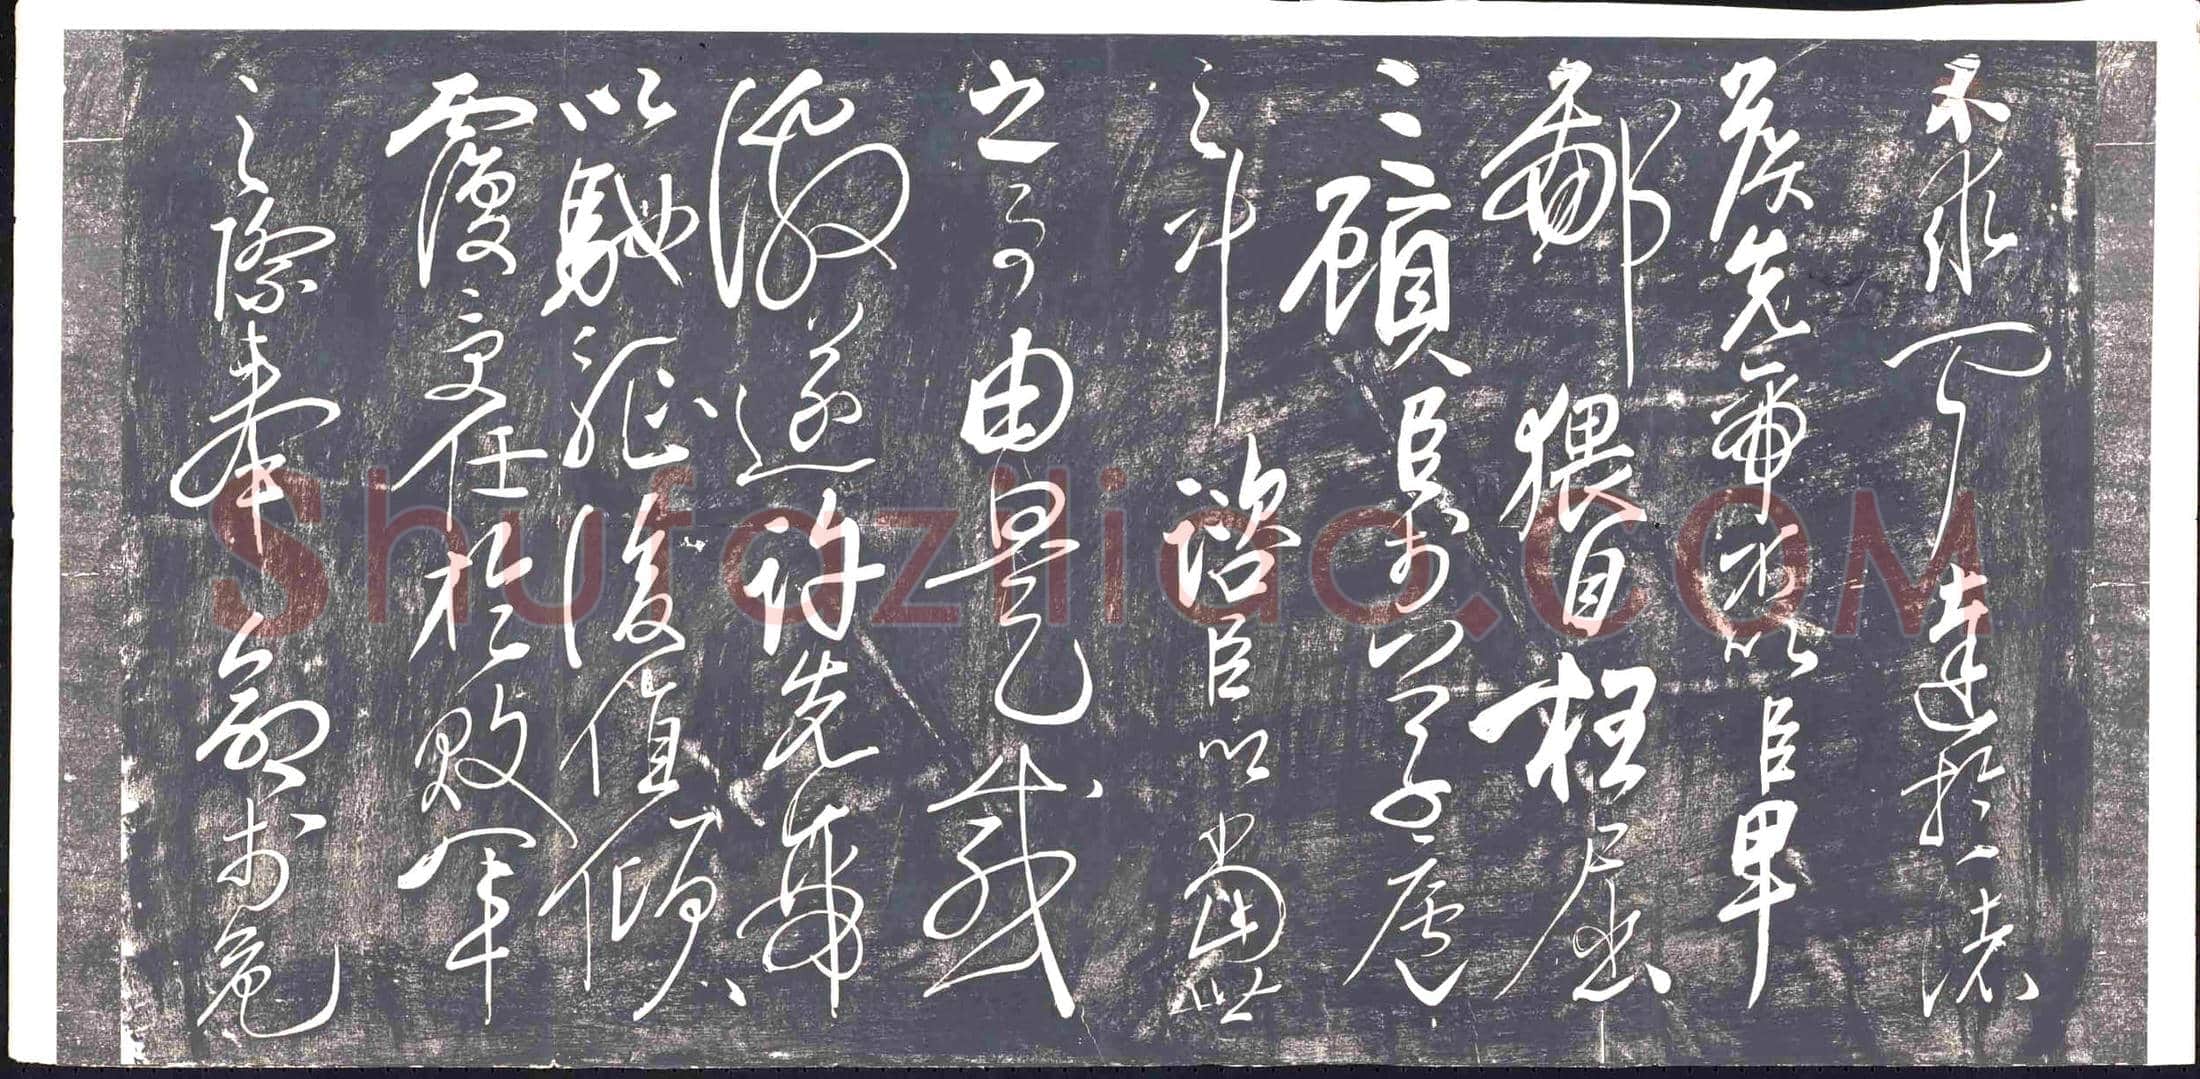 不求聞達於諸
侯先帝不以臣卑
鄙猥自枉屈
三顧臣於草廬
之中諮臣以當世
之事由是感
激遂許先帝
以馳驅後值傾
覆受任於敗軍
之際奉命於危
Shufaziliao.COM